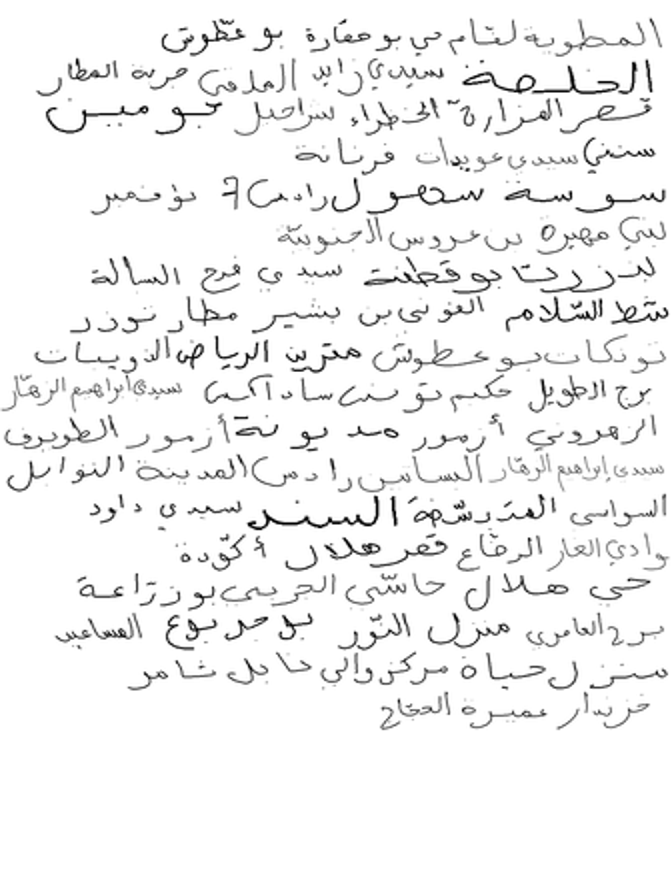 المطوية لقام حي بو حفارة بو عطّوش
الخليصة سيدي زايد حرية المطار
قصر المزارة الخضراء شراحيل نجو مين
سنني سيدي عويدات فرنانة
سوسة سهول رادس 7 نوفمبر
لبني مهيرة بن عروس الجنوبيّة
بنزرت بوقطنة سيدي فرج السالة
شط السّلام العوني بن بشير مطار توزر
نونكات بو عطوش مترين الرياض الذويبات
برج الطويل حكيم تونس سيدي ابراهيم الزهّار
الزهروني أزمور مديونة أزمور الطويرف
سيدي إبراهيم الزهّار البساتين رادس المدينة النوايل
السواسي السند سيدي داود
وادي الغار الرقاع قصر هلال أكّودة
حي هلال حاسّي الجربي بوزرّاعة
برج العامري منزل النّور بوجربوع المساعيد
منزل حياة مركز والي نابل شامر
خزندار عميرة الحجّاج